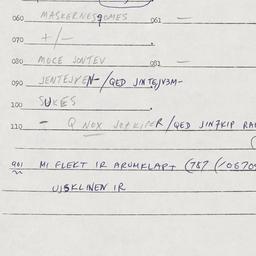 060 MASKERNESGOMES 061 —
070 +/-
080 MUCE JONTEV 081 —
090 JENTEJVEN-/QED JINTEJVEM-
100 SUKES
110 - Q NOX /QED JIN7KIP
961 MI FLEKT IR ARUMKLAPT (787
UJSKLINEN IR